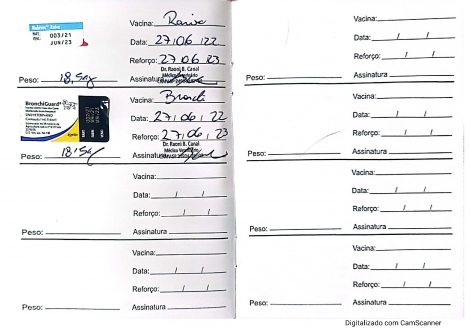 Raiva
003/21
JUN/23
Vacina: Raiva
Data: 27/06/22
Reforço: 27/06/23
Dr. Raoni B. Canal
Médico Veterinário
Peso: 18,5kg
Assinatura
BronchiGuard®
Vacina: Bronchi
Data: 27/06/22
Reforço: 27/06/23
Dr. Raoni B. Canal
Médico Veterinário
Peso: 18,5kg
Assinatura
Vacina:
Data: / /
Reforço: / /
Peso:
Assinatura
Vacina:
Data: / /
Reforço: / /
Peso:
Assinatura
Vacina:
Data: / /
Reforço: / /
Peso:
Assinatura
Vacina:
Data: / /
Reforço: / /
Peso:
Assinatura
Vacina:
Data: / /
Reforço: / /
Peso:
Assinatura
Vacina:
Data: / /
Reforço: / /
Peso:
Assinatura
Digitalizado com CamScanner